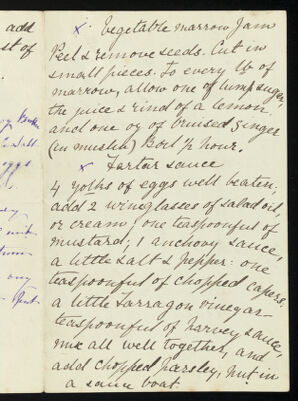 add
st of
x. Vegetable marrow Jam
Peel & remove seeds. Cut in
small pieces. To every lb of
marrow, allow one of lump sugar,
the juice & rind of a lemon
and one oz of bruised ginger
(in muslin) Boil ½ hour.
x Tartar sauce
4 yolks of eggs well beaten,
add 2 wineglasses of salad oil,
or cream; one teaspoonful of
mustard; 1 anchovy sauce,
a little salt & pepper: one
teaspoonful of chopped capers:
a little tarragon vinegar
teaspoonful of harvey sauce,
mix all well together, and
add chopped parsley, put in
a sauce boat